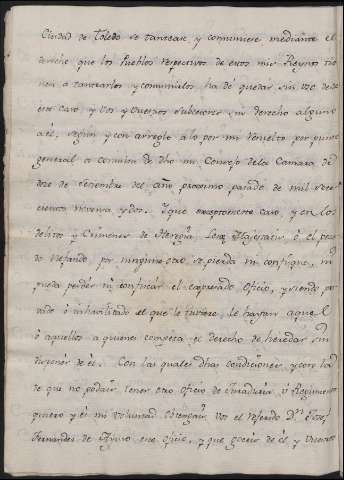 Ciudad de Toledo se tantease y consumiese mediante el
derecho que los Pueblos respectivos de estos mis Reynos tie
nen á tantearlos y consumirlos, ha de quedar sin uso de
este caso, y Vos y vuestros subcesores sin derecho alguno
a él, segun y con arreglo a lo por mi resuelto por punto
general a consulta de dho mi Consejo de la Camara de
doze de Setiembre del año proximo pasado de mil sete
cientos noventa, y dos. Y que excepto en este caso, y en los
delitos y Crimenes de Heregia Lese Magestatis, ó el peca
do Nefando, por ninguno otro se pierda ni confisque, ni
pueda perder ni confiscar el expresado Oficio, y siendo pri
vado ó inhabilitado el que le tuviere, le hayan aquel
ó aquellos a quienes competa el derecho de heredar sin
disponer de él. Con las quales dhas condiciones, y con la
de que no podais tener otro oficio de Juraduria, ó Regimiento
quiero y es mi Voluntad obtengais Vos el referido Dn Josef
Fernandez de ese oficio, y que goceis de él y vuestros